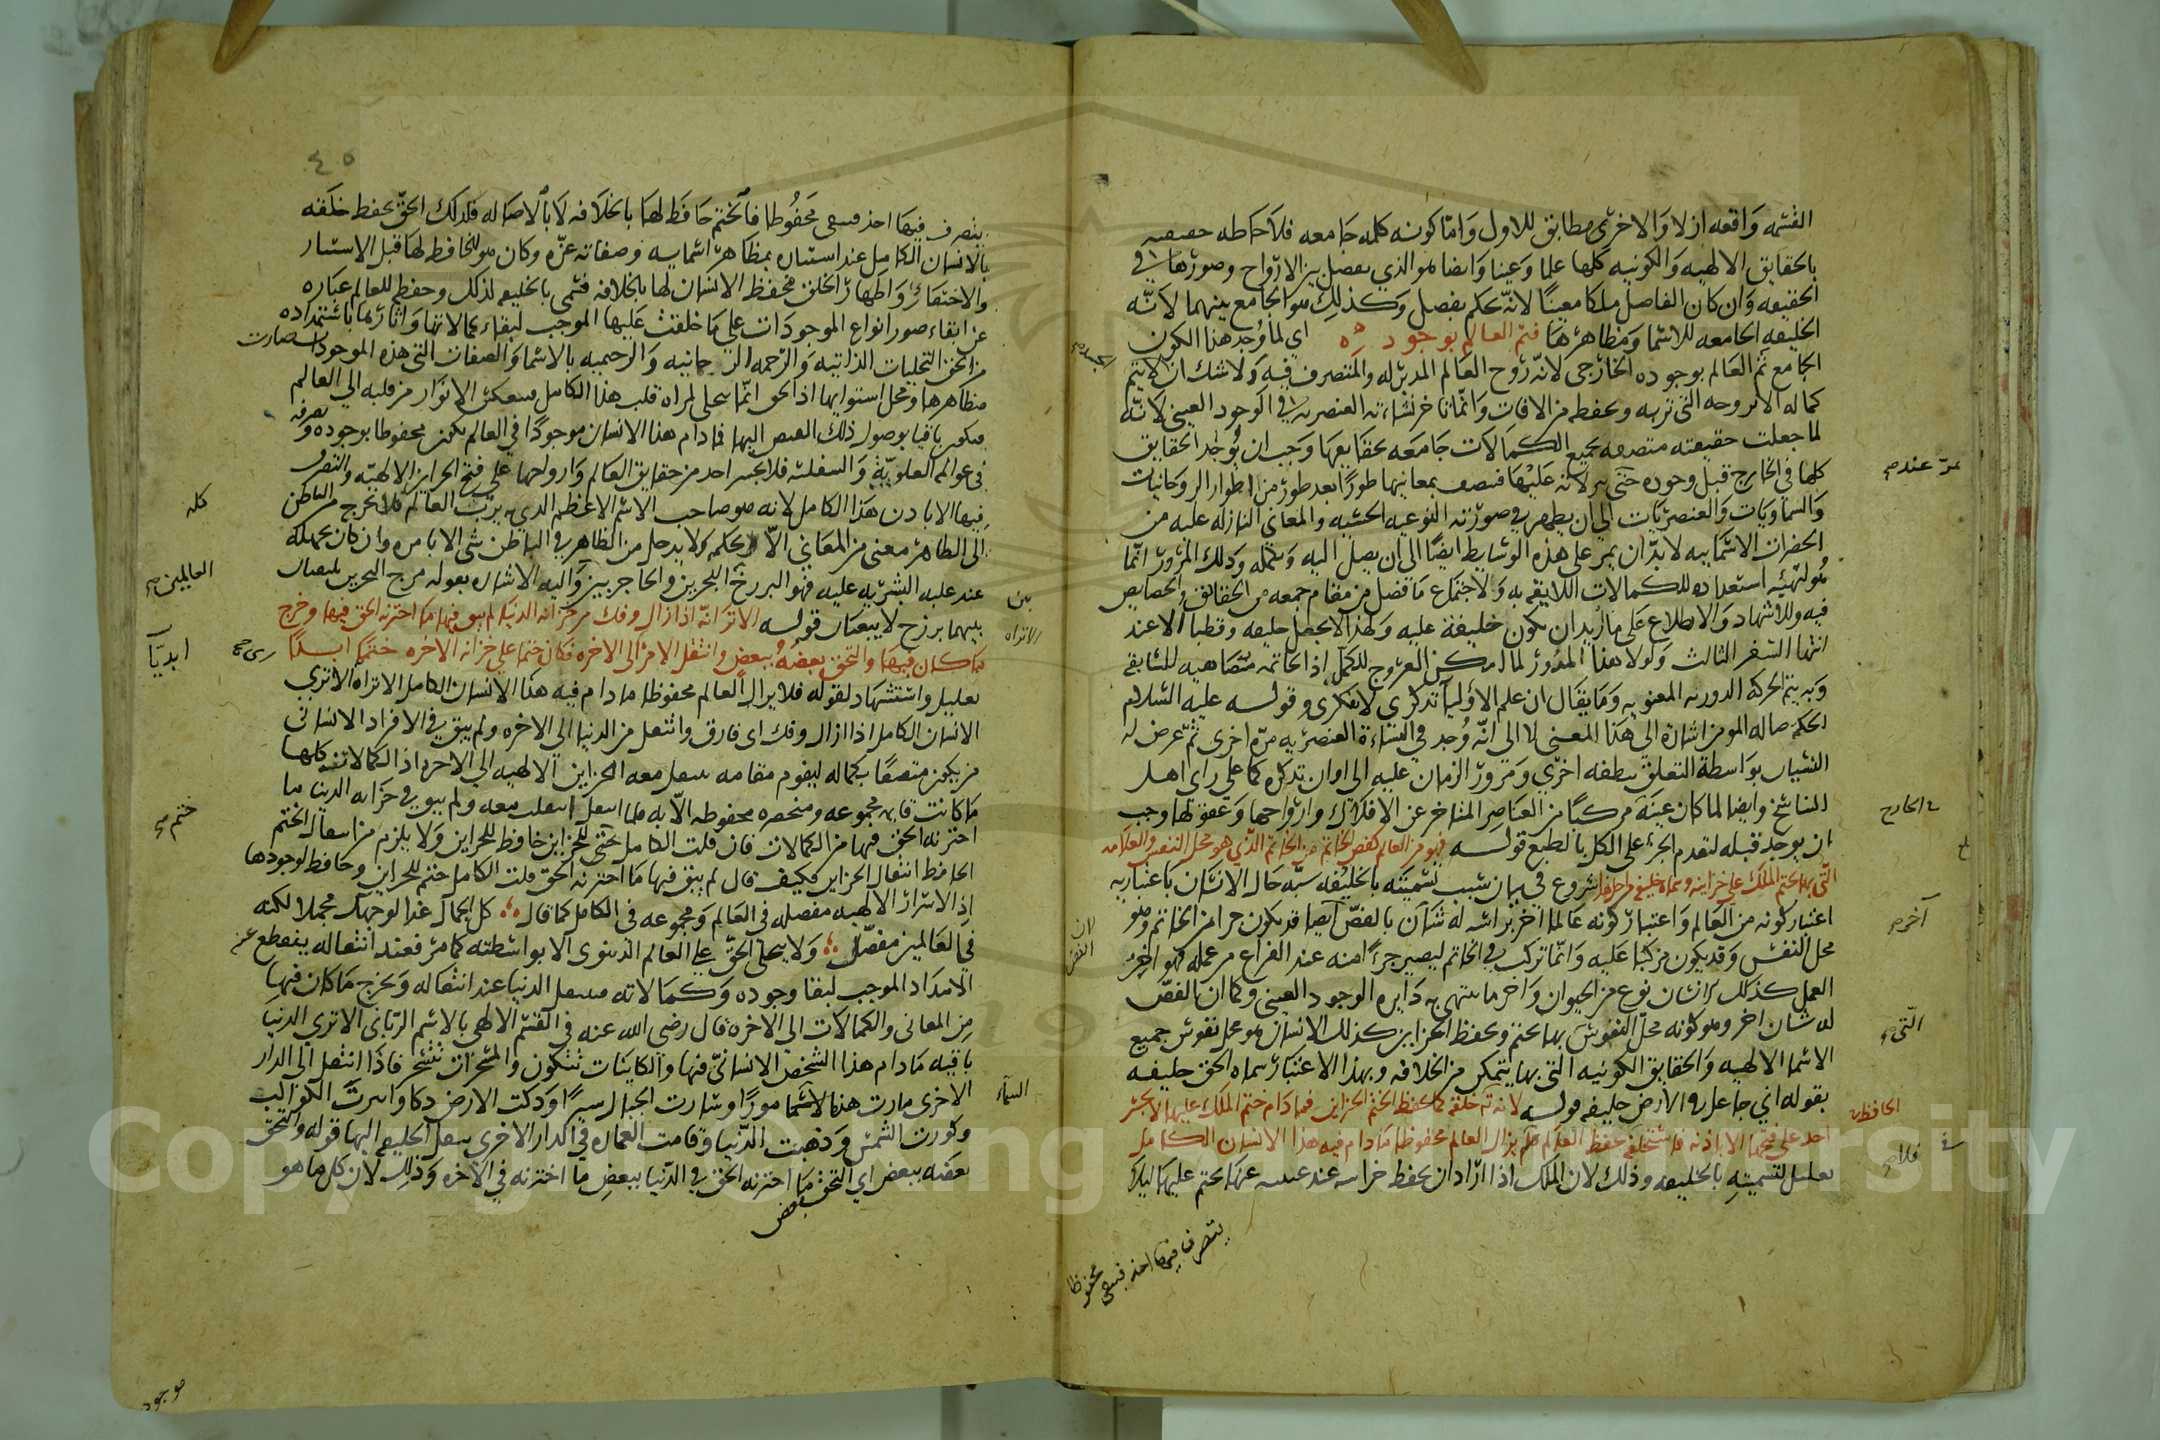 القسمة واقعة ازلا والاخرى مطابق للاول واما كونه كلمة جامعة فلاحاطة حقيقته
بالحقايق الالهيه والكونيه كلها علما وعينا وايضا هو الذي يفصل بين الارواح وصورها في
الحقيقه وان كان الفاصل ملكا معينا لانه بحكمه يفصل وكذلك هو الجامع بينهما لانه
الخليفه الجامعه للاسما ومظاهرها فتم العالم بوجوده اي لما وجد هذا الكون
الجامع تم العالم بوجوده الخارجى لانه روح العالم المدبر له والمتصرف فيه ولا شك ان لا يتم
كماله الا بروحه التى تربيه وتحفظه من الافات وانما تاخر نشاءته العنصريه في الوجود العيني لانه
لما جعلت حقيقته متصفه بجميع الكمالات جامعه بحقايقها وجب ان يوجد الحقايق
كلها في الخارج قبل وجوده حتى يمر عند تنزلاته عليها فيتصف بمعانيها طورا بعد طور من اطوار الروحانيات
والسماويات والعنصريات الى ان يظهر في صورته النوعيه الحسيه والمعاني النازله عليه من
الحضرات الاسمائيه لا بد ان يمر على هذه الوسايط ايضا الى ان يصل اليه وتكمله وذلك المرور انما
هو لتهيئة استعداده للكمالات اللايقه به ولاجتماع ما فصل من مقام جمعه من الحقايق والخصايص
فيه وللاشهاد والاطلاع على ما اريد ان يكون خليفة عليه ولهذا لا يجعل خليفه وقطبا الا عند
انتهاء السفر الثالث ولولا هذا المرور لما امكن العروج للكمل اذ الخاتمه مضاهيه للسابقه
وبه يتم الحركة الدوريه المعنويه وما يقال ان علم الاوليا تذكري لا تفكري وقوله عليه السلام
الحكمة ضالة المومن اشارة الى هذا المعنى لا الى انه وجد في النشاءة العنصريه مرة اخرى ثم عرض له
النسيان بواسطة التعلق بنطفه اخرى ومرور الزمان عليه الى اوان تذكره كما على راى اهل
التناسخ وايضا لما كان عينه مركبا من العناصر المتاخر عن الافلاك وارواحها وعقولها وجب
ان يوجد قبله لتقدم الجزء على الكل بالطبع قوله فهو من العالم كفص الخاتم من الخاتم الذي هو محل النقش والعلامه
التي بها يختم الملك على خزاينه وسماه خليفة من اجل هذا شروع في بيان سبب تسميته بالخليفه شبه حال الانسان باعتباريه
اعتبار كونه من العالم واعتبار كونه عالما اخر براسه له شان بالفص ايضا قد يكون جزا من الخاتم وهو
محل النقش وقد يكون مركبا عليه وانما تركب في الخاتم ليصير جزءا منه عند الفراغ من عمله فهو اخر
العمل كذلك الانسان نوع من الحيوان واخر ما ينتهي به دايرة الوجود العيني وكما ان الفص
له شان اخر وهو كونه محل النقوش التي بها يختم ويحفظ الخزاين كذلك الانسان هو محل نقوش جميع
الاسما الالهيه والحقايق الكونيه التى بها يتمكن من الخلافه وبهذا الاعتبار سماه الحق خليفه
بقوله اني جاعل في الارض خليفة قوله لانه تعالى الحافظ خلقه كما يحفظ الختم الخزاين فما دام ختم الملك عليها لا يجسر
احد على فتحها الا باذنه فاستخلفه في حفظ العالم فلا يزال العالم محفوظا ما دام فيه هذا الانسان الكامل
تعليل لتسميته بالخليفه وذلك لان الملك اذا اراد ان يحفظ خزاينه عند غيبته عنها يختم عليها ليلا
يتصرف فيها احد فيبقى محفوظا
عند
الخارج
آخر
التي
الحافظ
فلا
٤٥
يتصرف فيها احد فيبقى محفوظا فالختم حافظ لها بالخلافه لا بالاصاله فكذلك الحق يحفظ خلقه
بالانسان الكامل عند استتاره بمظاهر اسمائه وصفاته عزة وكان هو الحافظ لها قبل الاستتار
والاختفاء واظهار الخلق فحفظ الانسان لها بالخلافه فسمى بالخليفه لذلك وحفظه للعالم عباره
عن ابقاء صور انواع الموجودات على ما خلقت عليها الموجب لبقاء كمالاتها واثارها باستمداده
من الحق التجليات الذاتيه والرحمة الرحمانيه والرحيميه بالاسما والصفات التى هذه الموجودات صارت
مظاهرها ومحل استوايها اذ الحق انما يتجلى لمراة قلب هذا الكامل فينعكس الانوار من قلبه الى العالم
فيكون باقيا بوصول ذلك الفيض اليها فما دام هذا الانسان موجودا في العالم يكون محفوظا بوجوده وتصرفه
في عوالمه العلويه والسفليه فلا يجسر احد من حقايق العالم وارواحها على فتح الخزاين الالهيه والتصرف
فيها الا باذن هذا الكامل لانه هو صاحب الاسم الاعظم الذي به يرب العالم كله فلا يخرج من الباطن
الى الظاهر معنى من المعاني الا بحكمه ولا يدخل من الظاهر في الباطن شى الا بامره وان كان يجهله
عند غلبه البشريه عليه فهو البرزخ بين البحرين والحاجز بين العالمين واليه الاشاره بقوله مرج البحرين يلتقيان
بينهما برزخ لا يبغيان قوله الا تراه اذا زال وفك من خزانة الدنيا لم يبق فيها ما اختزنه الحق فيها وخرج
ما كان فيها والتحق بعضه ببعض وانتقل الامر الى الاخره فكان ختما على خزانة الاخره ختما ابديا
تعليل واستشهاد لقوله فلا يزال العالم محفوظا ما دام فيه هذا الانسان الكامل الا تراه الا ترى
الانسان الكامل اذا زال وفك اى فارق وانتقل من الدنيا الى الاخره ولم يبق في الافراد الانسانى
من يكون متصفا بكماله ليقوم مقامه ينتقل معه الخزاين الالهيه الى الاخره اذ الكمالات كلها
ما كانت قايمه مجموعه ومنحصره محفوظه الا به فلما انتقل انتقلت معه ولم يبق في خزانة الدنيا ما
اختزنه الحق فيها من الكمالات فان قلت الكامل ختم للخزاين حافظ للخزاين ولا يلزم من انتقال الختم
الحافظ انتقال الخزاين فكيف قال لم يبق فيها ما اختزنه الحق قلت الكامل ختم للخزاين وحافظ لوجودها
اذ الاسرار الالهيه مفصله في العالم ومجموعه في الكامل كما قال كل الجمال غدا لوجهك مجملا لكنه
في العالمين مفصل ولا يتجلى الحق على العالم الدنيوى الا بواسطته كما مر فعند انتقاله ينقطع عنه
الامداد الموجب لبقا وجوده وكمالاته فينتقل الدنيا عند انتقاله ويخرج ما كان فيها
من المعانى والكمالات الى الاخره قال رضى الله عنه في القسم الالهى بالاسم الربانى الا ترى الدنيا
باقيه ما دام هذا الشخص الانسانى فيها والكاينات تتكون والمسخرات تتسخر فاذا انتقل الى الدار
الاخرى مارت هذه السماء مورا وسارت الجبال سيرا ودكت الارض دكا وانتثرت الكواكب
وكورت الشمس وذهبت الدنيا وقامت العماره في الدار الاخرى بنقل الخليفه اليها قوله والتحق
بعضه ببعض اى التحق ما اختزنه الحق في الدنيا ببعض ما اختزنه في الاخره وذلك لان كل ما هو
كله
العالمين
ابديا
ختم
السماء
موجود
Copyright © King Saud University